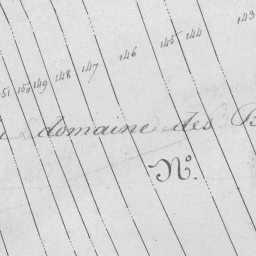 151 150 149 148 147 146 145 144 143
domaine des
N°.